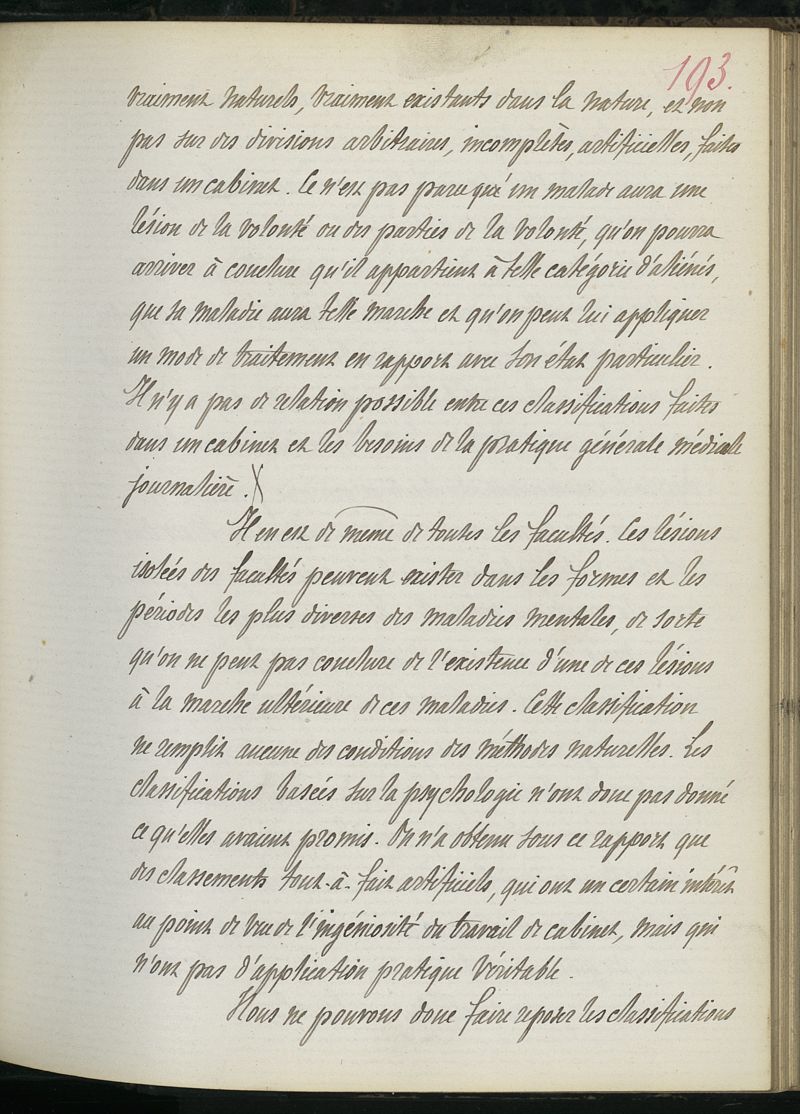 193.
vraiment naturels, vraiment existants dans la nature, et non
pas sur des divisions arbitraires, incomplètes, artificielles, faites
dans un cabinet. Ce n'est pas parce qu'un malade aura une
lésion de la volonté ou des parties de la volonté, qu'on pourra
arriver à conclure qu'il appartient à telle catégorie d'aliénés,
que sa maladie aura telle marche et qu'on peut lui appliquer
un mode de traitement en rapport avec son état particulier.
Il n'y a pas de relation possible entre ces classifications faites
dans un cabinet et les besoins de la pratique générale médicale
journalière.
Il en est de même de toutes les facultés. Ces lésions
isolées des facultés peuvent exister dans les formes et les
périodes les plus diverses des maladies mentales, de sorte
qu'on ne peut pas conclure de l'existence d'une de ces lésions
à la marche ultérieure de ces maladies. Cette classification
ne remplit aucune des conditions des méthodes naturelles. Les
classifications basées sur la psychologie n'ont donc pas donné
ce qu'elles avaient promis. On n'a obtenu sous ce rapport que
des classements tout-à-fait artificiels, qui ont un certain intérêt
au point de vue de l'ingéniosité du travail de cabinet, mais qui
n'ont pas d'application pratique véritable.
Nous ne pouvons donc faire reposer les classifications